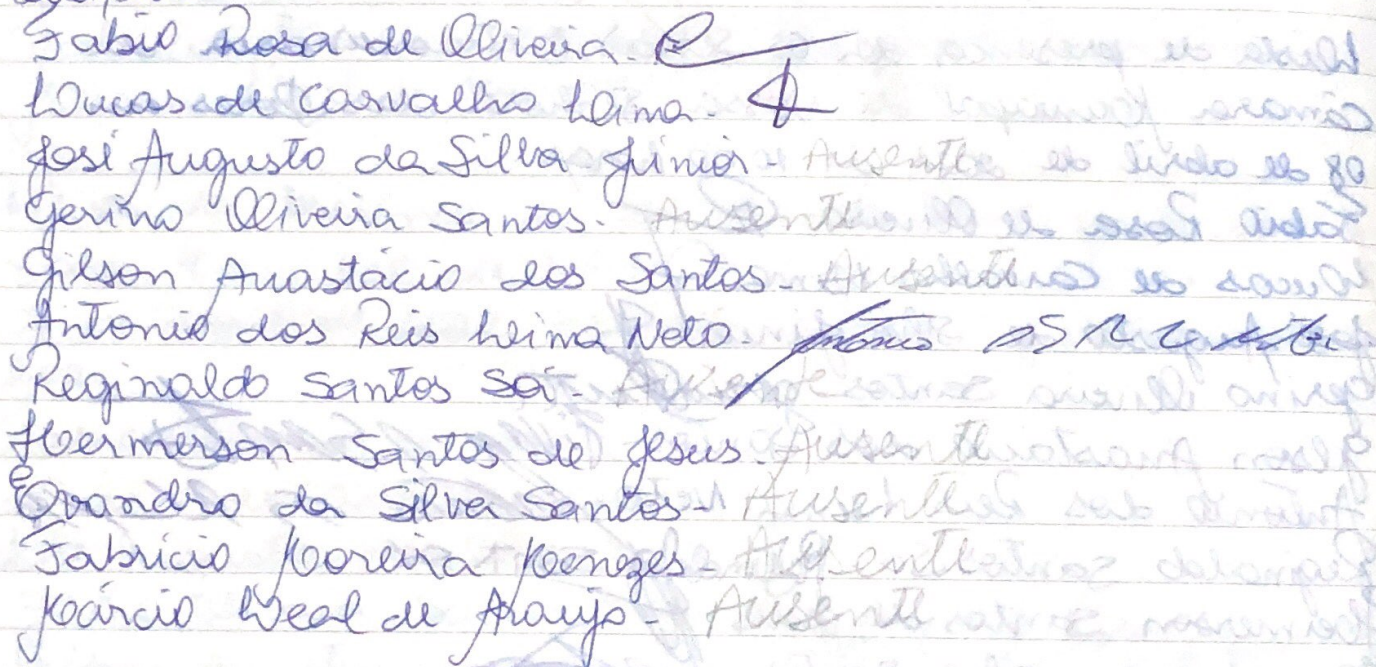 Fabio Rosa de Oliveira.
Lucas de Carvalho Lima.
José Augusto da Silva Júnior - Ausente
Gerino Oliveira Santos. Ausente
Gilson Anastácio dos Santos - Ausente
Antonio dos Reis Lima Neto. Antônio
Reginaldo Santos Sá - Ausente
Hermerson Santos de Jesus. Ausente
Evandro da Silva Santos - Ausente
Fabrício Moreira Menezes - Ausente
Márcio Leal de Araujo - Ausente